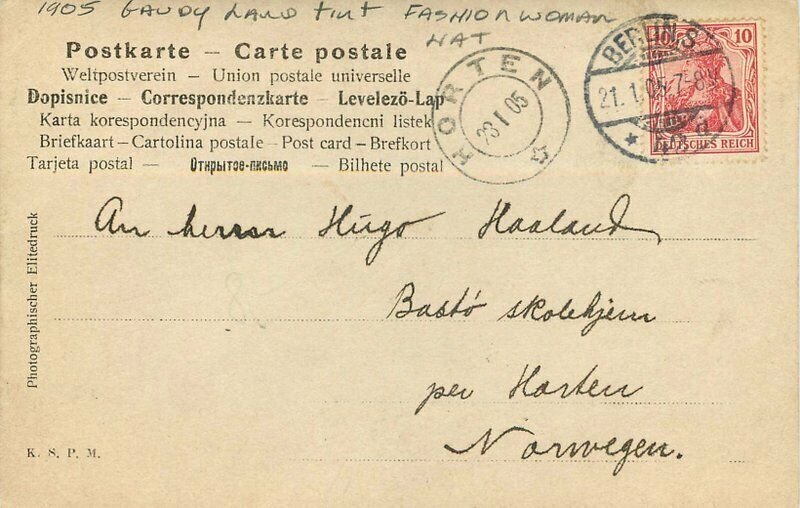 1905 GAUDY HAND tint FASHION WOMAN
HAT
Postkarte — Carte postale
Weltpostverein — Union postale universelle
Dopisnice — Correspondenzkarte — Levelezö-Lap
Karta korespondencyjna — Korespondencni listek
Briefkaart — Cartolina postale — Post card — Brefkort
Tarjeta postal — Открытое-письмо — Bilhete postal
HORTEN
23 I 05
BERLIN S
21.1.05.7-8
10
DEUTSCHES REICH
An herrn Hugo Haaland
Bastö skolehjem
per Horten
Norwegen.
Photographischer Elitedruck
K. S. P. M.